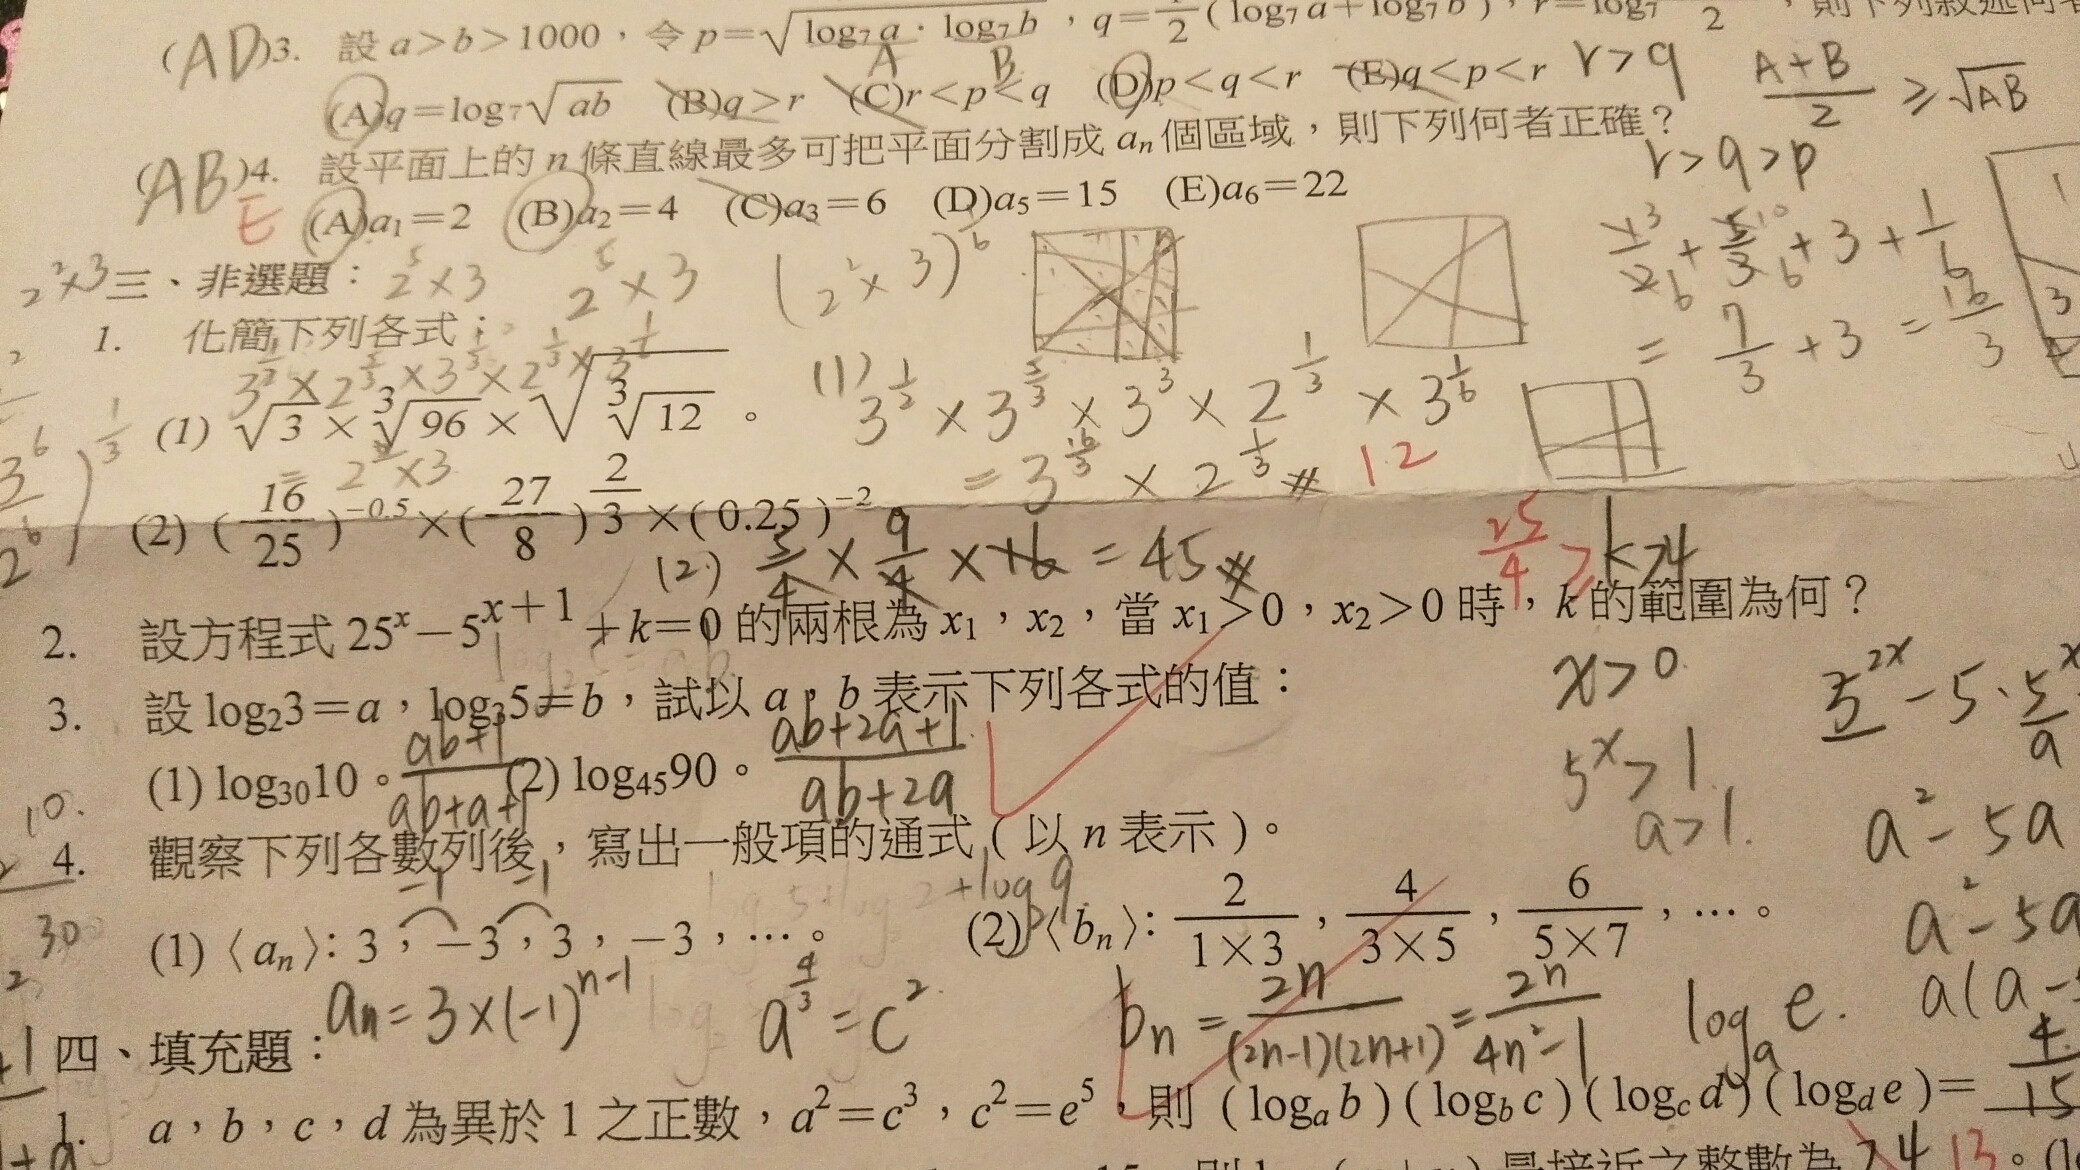 (AD)3. 設 a>b>1000，令 p=√(log₇a · log₇b)，q=1/2(log₇a+log₇b)，r=log₇ 2，則下列敘述何者
A B
(A)q=log₇√ab (B)q>r (C)r<p<q (D)p<q<r (E)q<p<r r>q (A+B)/2 ≥ √AB
r>q>p
(AB)4. 設平面上的 n 條直線最多可把平面分割成 aₙ 個區域，則下列何者正確？
E (A)a₁=2 (B)a₂=4 (C)a₃=6 (D)a₅=15 (E)a₆=22
2²×3 三、非選題： 2⁵×3 2⁵×3 (2²×3)^(1/6)
1. 化簡下列各式：
= 7/3 + 3 = 16/3
(1) √3 × ³√96 × √(³√12)。
(1) 3^(1/2) × 3^(5/3) × 3³ × 2^(1/3) × 3^(1/6)
= 3^(16/3) × 2^(1/3) #
12
(2) (16/25)^(-0.5) × (27/8)^(2/3) × (0.25)^(-2)
(2) 5/4 × 9/4 × 16 = 45 #
25/4 > k>4
2. 設方程式 25ˣ－5ˣ⁺¹＋k=0 的兩根為 x₁，x₂，當 x₁>0，x₂>0 時，k 的範圍為何？
x>0.
5ˣ>1.
a>1.
5²ˣ－5·5ˣ
a
a²－5a
a²－5a
3. 設 log₂3=a，log₃5=b，試以 a，b 表示下列各式的值：
(1) log₃₀10。(ab+1)/(ab+a+1) (2) log₄₅90。(ab+2a+1)/(ab+2a)
10.
30
4. 觀察下列各數列後，寫出一般項的通式（以 n 表示）。
-1 -1
(1)〈aₙ〉: 3，－3，3，－3，…。 (2)〈bₙ〉: 2/(1×3)，4/(3×5)，6/(5×7)，…。
aₙ=3×(-1)ⁿ⁻¹ a^(4/3)=c² bₙ = 2n/((2n-1)(2n+1)) = 2n/(4n²-1) logₐe.
四、填充題：
1. a，b，c，d 為異於 1 之正數，a²=c³，c²=e⁵，則 (logₐb)(log_b c)(log_c d)(log_d e)= 4/15
最接近之整數為 74 13。